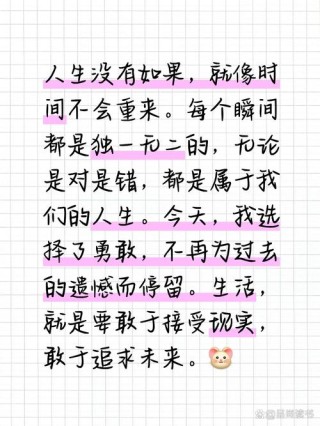 人生没有如果，就像时
间不会重来。每个瞬间
都是独一无二的，无论
是对是错，都是属于我
们的人生。今天，我选
择了勇敢，不再为过去
的遗憾而停留。生活，
就是要敢于接受现实，
敢于追求未来。🐭